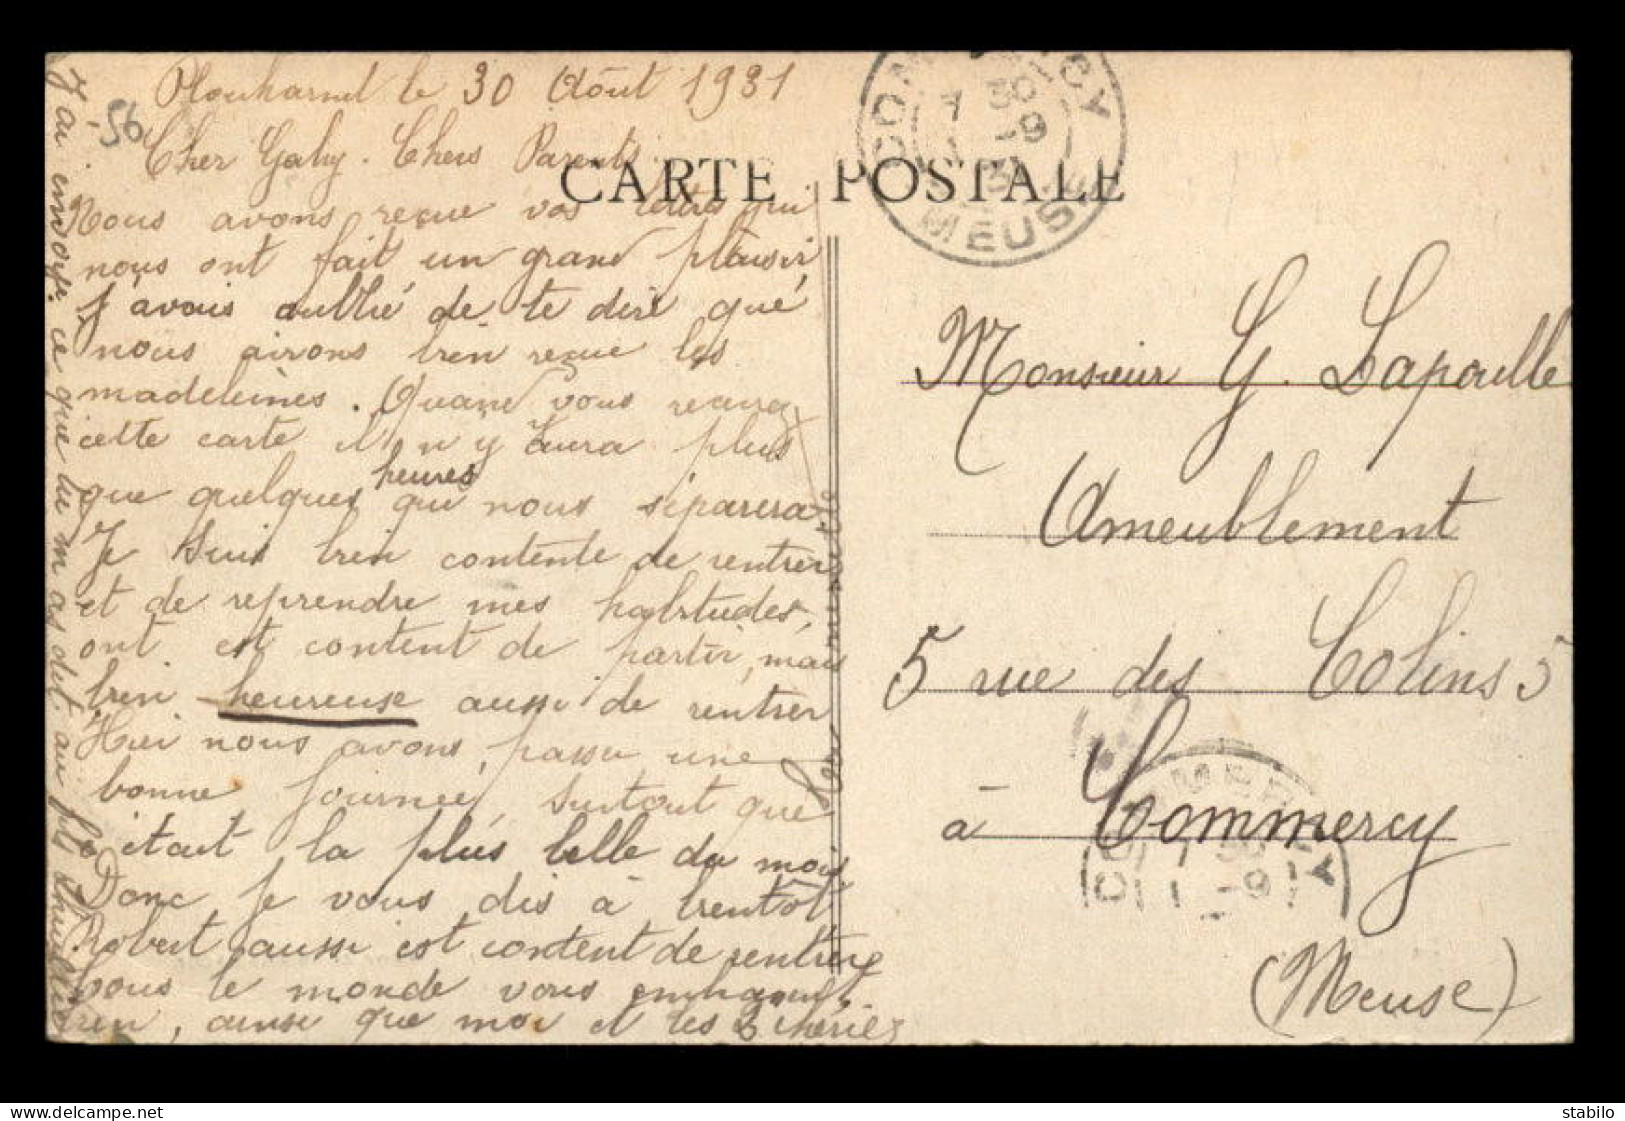 Plouharnel le 30 Aôut 1931
-56
Cher Gaby. Chers Parents
CARTE POSTALE
Nous avons reçue vos lettres qui
nous ont fait un grand plaisir
J'avais oublié de te dire que
nous avions bien reçue les
madeleines. Quand vous
cette carte il n'y aura plus
que quelques heures qui nous séparera.
Je suis bien contente de rentrer
et de reprendre mes habitudes,
ont est content de partir, mais
bien heureuse aussi de rentrer
Hier nous avons, passer une
bonne journée, surtout que
c'était la plus belle du mois
Donc je vous dis à bientôt
Robert aussi est content de rentrer
le monde vous
bien, ainsi que moi et les 2 chéries
J'ai envoyé ce que tu m'as dit au
COMMERCY
7 30
1 -9
31
MEUSE
Monsieur G. Lapoulle
Ameublement
5 rue des Colins 5
à Commercy
(Meuse)
COMMERCY
7 30
1 -9
stabilo
www.delcampe.net